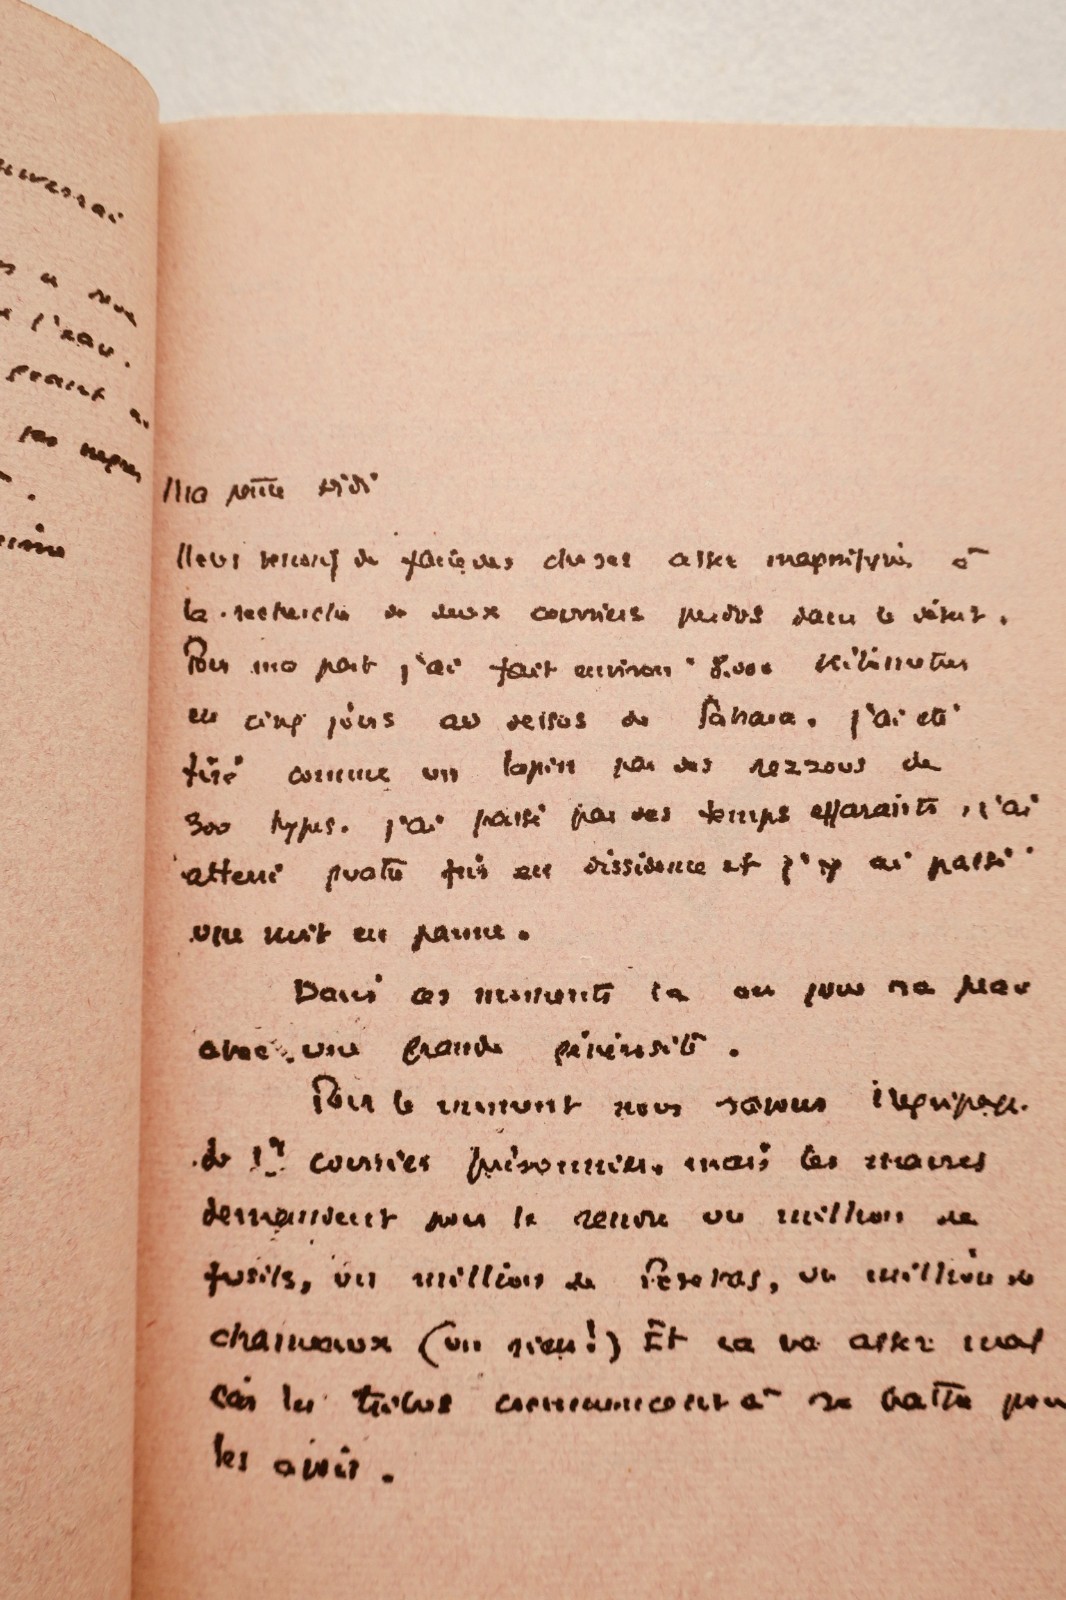 l'eau.
Ma petite Didi
Nous venons de faire des choses assez magnifiques à
la recherche de deux courriers perdus dans le désert.
Pour ma part j'ai fait environ 8.000 kilomètres
en cinq jours au dessus du Sahara. j'ai été
tiré comme un lapin par des rezzous de
300 types. j'ai passé par des temps effarants, j'ai
atterri quatre fois en dissidence et j'y ai passé
une nuit en panne.
Dans ces moments la on joue sa peau
avec une grande générosité.
Pour le moment nous savons l'équipage
du 1er courrier prisonnier, mais les maures
demandent pour le rendre un million de
fusils, un million de Pesetas, un million de
chameaux (un rien!) Et ca va assez mal
car les tribus commencent à se battre pour
les avoir.